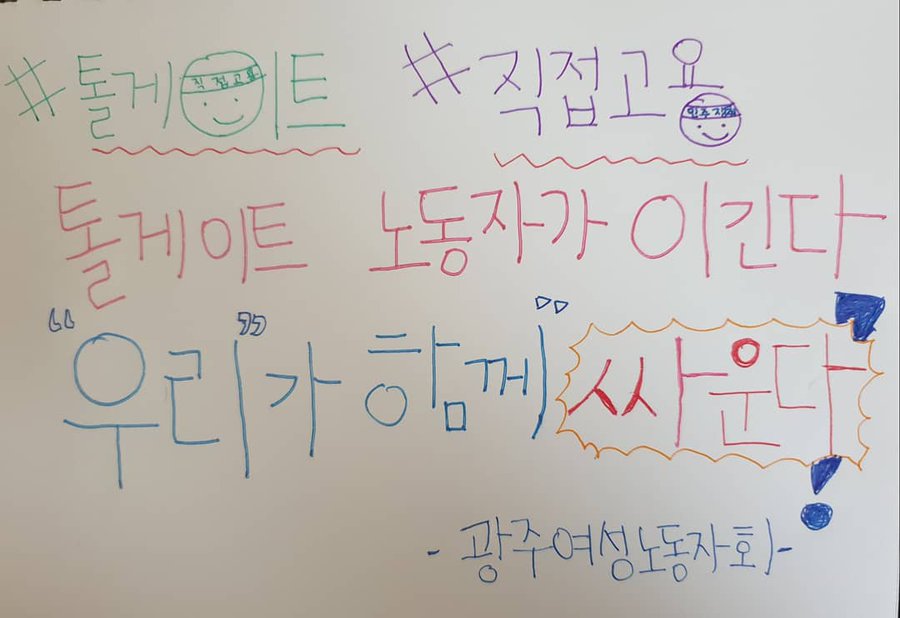 #톨게이트 #직접고용
직접고용
민주
톨게이트 노동자가 이긴다
“우리”가 함께 싸운다!
- 광주여성노동자회 -